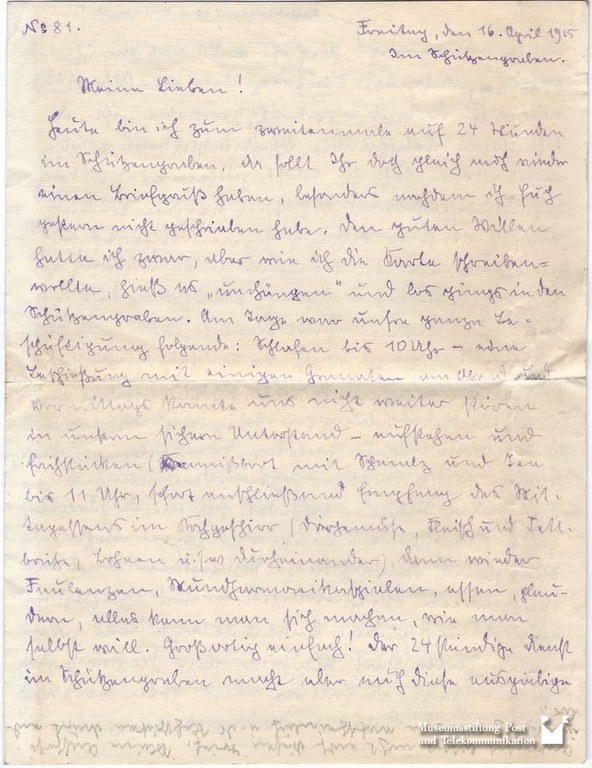 No 81.
Freitag, den 16. April 1915
Im Schützengraben.
Meine Lieben!
Heute bin ich zum zweitenmale auf 24 Stunden
im Schützengraben, da sollt Ihr doch gleich mal wieder
einen Briefgruß haben, besonders nachdem ich Euch
gestern nicht geschrieben habe. Den guten Willen
hatte ich zwar, aber wie ich die Karte schreiben
wollte, hieß es „umhängen" und los gings in den
Schützengraben. Am Tage war unsre ganze Be-
schäftigung folgende: Schlafen bis 10 Uhr – eine
Beschießung mit einigen Granaten am Abend und
Vormittags konnte uns nicht weiter stören
in unserm sichern Unterstand – aufstehen und
frühstücken (Kommißbrot mit Schmalz und Tee
bis 11 Uhr, sofort anschließend Empfang des Mit-
tagessens im Kochgeschirr (Dörrgemüse, Fleisch und Fett-
brühe, Bohnen u.s.w durcheinander), dann wieder
Faulenzen, Mundharmonikaspielen, essen, plau-
dern, alles kann man sich machen, wie man
selbst will. Großartig einfach! Der 24stündige Dienst
im Schützengraben macht aber auch diese ausgiebige
Museumsstiftung Post
und Telekommunikation